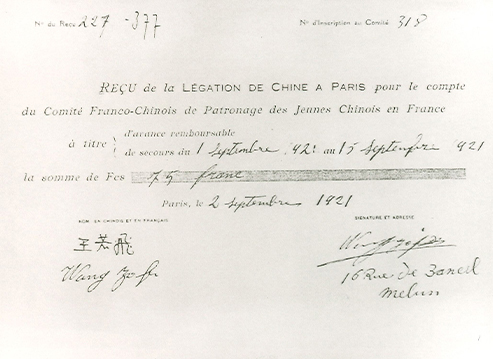 N° du Reçu 227 -377
N° d'Inscription au Comité 318
REÇU de la LÉGATION DE CHINE A PARIS pour le compte
du Comité Franco-Chinois de Patronage des Jeunes Chinois en France
à titre { d'avance remboursable
de secours du 1 Septembre 1921 au 15 Septembre 1921
la somme de Fcs 75 franc
Paris, le 2 Septembre 1921
NOM EN CHINOIS ET EN FRANÇAIS
SIGNATURE ET ADRESSE
王若飛
Wang
16 Rue de
Melun